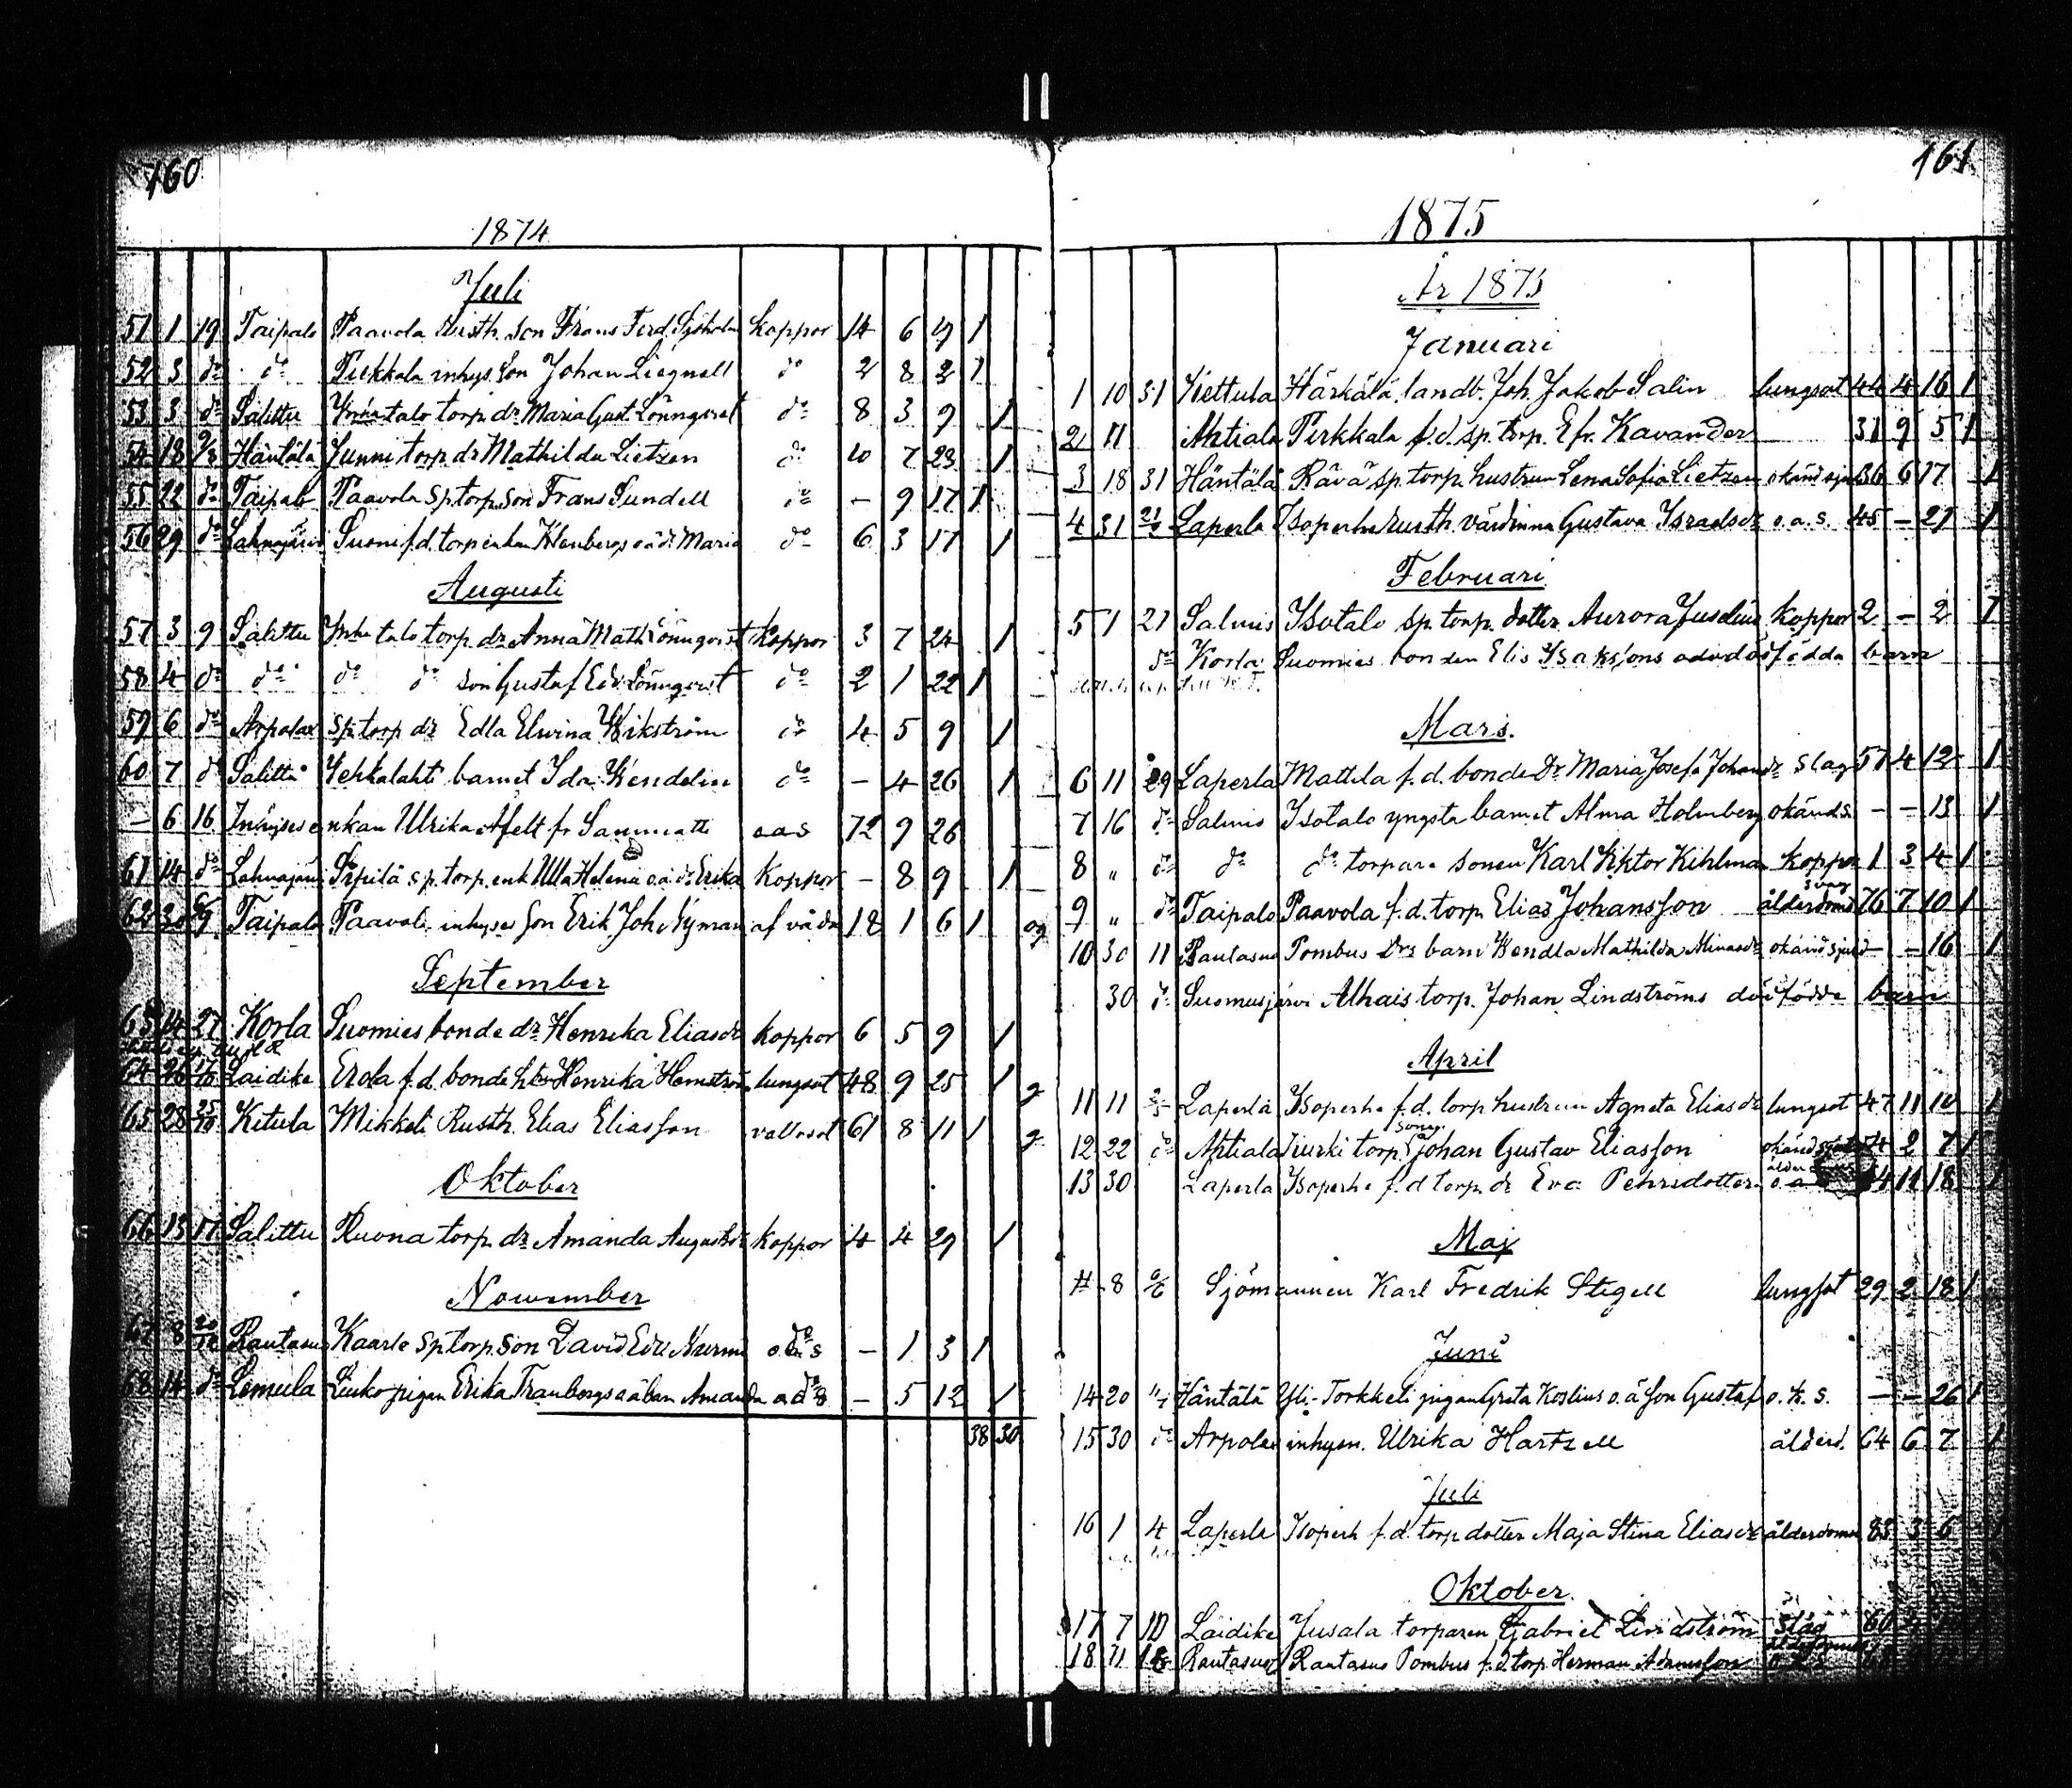 160
1874
Juli
51 1 19 Taipale Paavola Rusth. Son Frans Ferd. Sjöholm koppor 14 6 19 1
52 3 do do Pirkkala inhys. Son Johan Liegnell do 2 8 2 1
53 3 do Salittu Ynnätalo torp. dr Maria Gust. Lönnqvist do 8 3 9 1
54 18 9/8 Häntälä Junni torp. dr Mathilda Lietzen do 10 7 23 1
55 22 do Taipale Paavola Sp. torp. Son Frans Sundell do – 9 17 1
56 29 do Lahnajärvi Suoni f.d. torp. enkan Klenbergs o.ä. dr Maria do 6 3 17 1
Augusti
57 3 9 Salittu talo torp. dr Anna Math. Lönnqvist koppor 3 7 24 1
58 4 do do do do son Gustaf Edv. Lönnqvist do 2 1 22 1
59 6 do Arpalax Sp. torp. dr Edla Elwina Wikström do 4 5 9 1
60 7 do Salittu barnet Ida Wendelin do – 4 26 1
– 6 16 Inhysesenkan Ulrika Afelt fr. Sammatti o.a.s 72 9 26
61 14 do Lahnajärvi Seppilä sp. torp. enk. Ulla Helena o.ä. dr Erika koppor – 8 9 1
62 30 Taipale Paavola inhyses Son Erik Joh. Nyman af våda 18 1 6 1
September
63 14 27 Korla Suomies bonde dr Henrika Eliasdr koppor 6 5 9 1
64 26 Laidike Erola f.d. bonde Henrika Hemström lungsot 48 9 25 1
65 28 25/10 Kitula Mikkeli Rusth. Elias Eliasson vattusot 61 8 11 1
Oktober
66 13 17 Salittu Ruona torp. dr Amanda Augustsdr koppor 4 4 29 1
November
67 8 20/12 Rautasuo Kaarle Sp. torp. Son David Edv. Nurmi – 1 3 1
68 14 do Lemula Liuko pigan Erika Tranbergs o.ä. barn Amanda – 5 12 1
38 30
161
1875
År 1875
Januari
1 10 31 Kettula Härkälä landb. Joh. Jakob Salin lungsot 44 4 16 1
2 11 Ahtiala Pirkkala f.d. sp. torp. Efr. Kavander 31 9 5 1
3 18 31 Häntälä Rävä sp. torp. hustrun Lena Sofia Lietzen okänd sjuk 36 6 17 1
4 31 Laperla Isoperhe Rusth. värdinna Gustava Israelsdr o.a.s. 45 – 27 1
Februari
5 1 21 Salmis Isotalo sp. torp. dotter Aurora Juselius koppor 2 – 2 1
do Korla Suomies bonden Elis Isakssons odödöpfödda barn
Mars.
6 11 29 Laperla Mattila f.d. bonde Dr Maria Josefa Johansdr Slag 57 4 12 1
7 16 do Salmis Isotalo yngsta barnet Alma Holmberg okänd s. – – 13 1
8 „ do do do torpare sonen Karl Viktor Kihlman koppor 1 3 4 1
9 „ do Taipale Paavola f.d. torp. Elias Johansson ålderdoms svag 76 7 10 1
10 30 11 Rautasuo Pombus Drs barn Wendla Mathilda okänd sjukd – – 16 1
30 do Suomusjärvi Alhais torp. Johan Lindströms dödfödde barn
April
11 11 Laperla Isoperhe f.d. torp. hustrun Agneta Eliasdr lungsot 47 11 10 1
12 22 do Ahtiala Jurki torp. sonen Johan Gustav Eliasson okänd sjukd 54 2 7 1
13 30 Laperla Isoperhe f.d. torp. dr Eva Pehrsdotter ålder 11 18 1
Maj
8 Sjömannen Karl Fredrik Stigell lungsot 29 2 18 1
Juni
14 20 Häntälä Yli-Torkkeli pigan Greta Koslins o.ä. Son Gustaf o.k.s. – – 26 1
15 30 do Arpalax inhysn. Ulrika Hartzell ålderd. 64 6 7 1
Juli
16 1 4 Laperla Isoperh. f.d. torp. dotter Maja Stina Eliasdr ålderdoms 83 3 6 1
Oktober
17 7 10 Laidike Jusala torparen Gabriel Lindström Slag 60
18 11 Rautasuo Rautasuo Pombus f.d. torp. Herman Adamsson